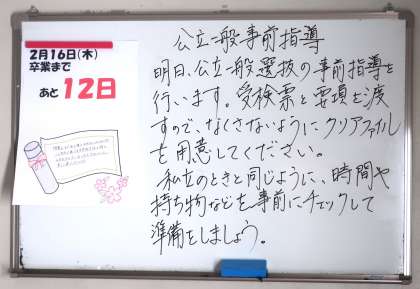 2月16日(木)
卒業まで
あと12日
公立一般事前指導
明日、公立一般選抜の事前指導を
行います。受検票と要項を渡
すので、なくさないようにクリアファイル
を用意してください。
私立のときと同じように、時間や
持ち物などを事前にチェックして
準備をしましょう。